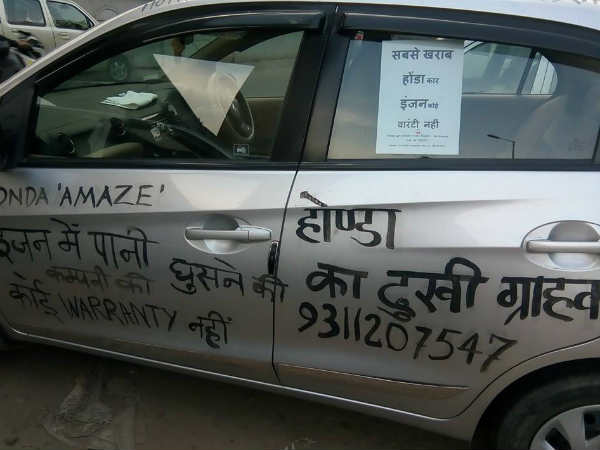 ONDA 'AMAZE'
इंजन में पानी घुसने की
कम्पनी की
कोई WARRANTY नहीं
सबसे खराब
होंडा कार
इंजन कोई
वारंटी नहीं
होण्डा
का दुखी ग्राहक
9311207547